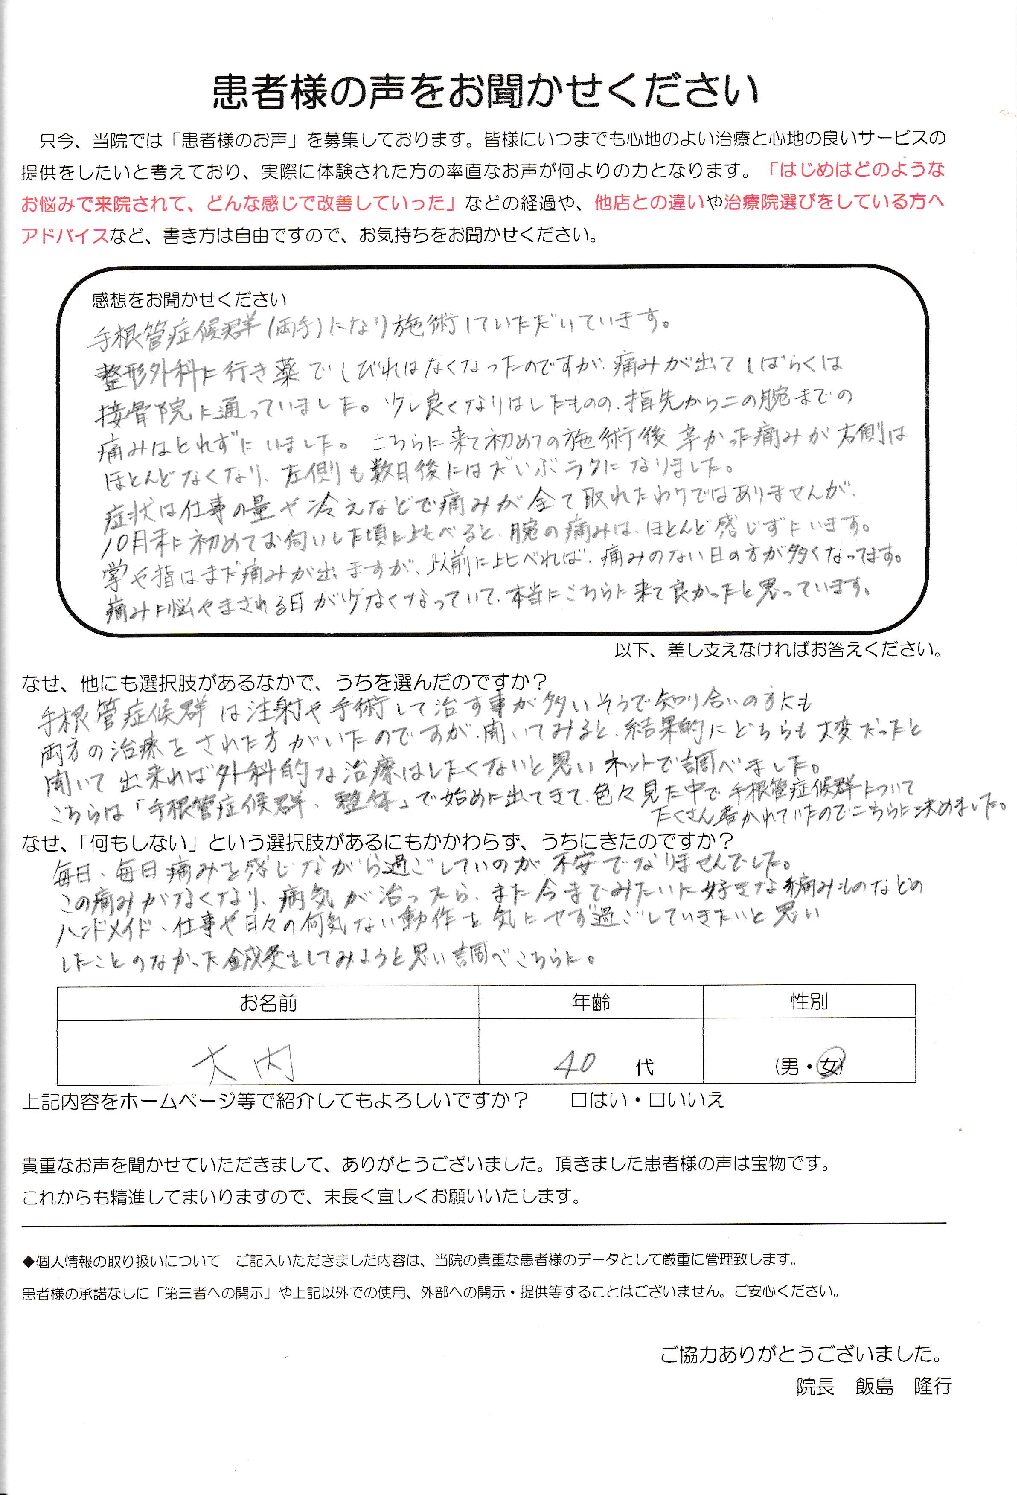 患者様の声をお聞かせください
只今、当院では「患者様のお声」を募集しております。皆様にいつまでも心地のよい治療と心地の良いサービスの
提供をしたいと考えており、実際に体験された方の率直なお声が何よりの力となります。「はじめはどのような
お悩みで来院されて、どんな感じで改善していった」などの経過や、他店との違いや治療院選びをしている方へ
アドバイスなど、書き方は自由ですので、お気持ちをお聞かせください。
感想をお聞かせください
手根管症候群(両手)になり施術していただいています。
整形外科に行き薬でしびれはなくなったのですが、痛みが出てしばらくは
接骨院に通っていました。少し良くなりはしたものの、指先から二の腕までの
痛みはとれずにいました。こちらに来て初めての施術後辛かった痛みが右側は
ほとんどなくなり、左側も数日後にはだいぶラクになりました。
症状は仕事の量や冷えなどで痛みが全て取れたわけではありませんが、
10月末に初めてお伺いした頃に比べると、腕の痛みは、ほとんど感じずにいます。
掌や指はまだ痛みが出ますが、以前に比べれば、痛みのない日の方が多くなってます。
痛みに悩やまされる日が少なくなっていて、本当にこちらに来て良かったと思っています。
以下、差し支えなければお答えください。
なぜ、他にも選択肢があるなかで、うちを選んだのですか？
手根管症候群は注射や手術して治す事が多いそうで知り合いの方にも
両方の治療をされた方がいたのですが、聞いてみると、結果的にどちらも大変だったと
聞いて出来れば外科的な治療はしたくないと思いネットで調べました。
こちらは「手根管症候群、整体」で始めに出てきて、色々見た中で手根管症候群について
たくさん書かれていたのでこちらに決めました。
なぜ、「何もしない」という選択肢があるにもかかわらず、うちにきたのですか？
毎日、毎日痛みを感じながら過ごしていのが不安でなりませんでした。
この痛みがなくなり、病気が治ったら、また今までみたいに好きな編みものなどの
ハンドメイド、仕事や日々の何気ない動作を気にせず過ごしていきたいと思い
したことのなかった鍼灸をしてみようと思い調べこちらに。
お名前 年齢 性別
大内 40 代 (男・女)
上記内容をホームページ等で紹介してもよろしいですか？ □はい・□いいえ
貴重なお声を聞かせていただきまして、ありがとうございました。頂きました患者様の声は宝物です。
これからも精進してまいりますので、末長く宜しくお願いいたします。
◆個人情報の取り扱いについて ご記入いただきました内容は、当院の貴重な患者様のデータとして厳重に管理致します。
患者様の承諾なしに「第三者への開示」や上記以外での使用、外部への開示・提供等することはございません。ご安心ください。
ご協力ありがとうございました。
院長 飯島 隆行